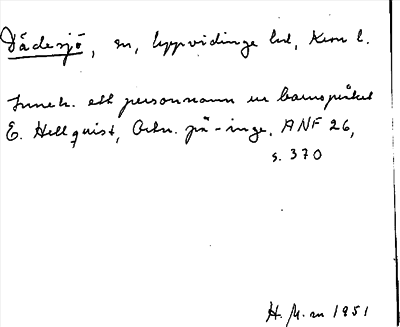 Dädesjö, sn, Uppvidinge hd, Kron l.
Inneh. ett personnamn ur barnspråket
E. Hellquist, Ortn. på -inge, ANF 26,
s. 370
H. M-m 1951